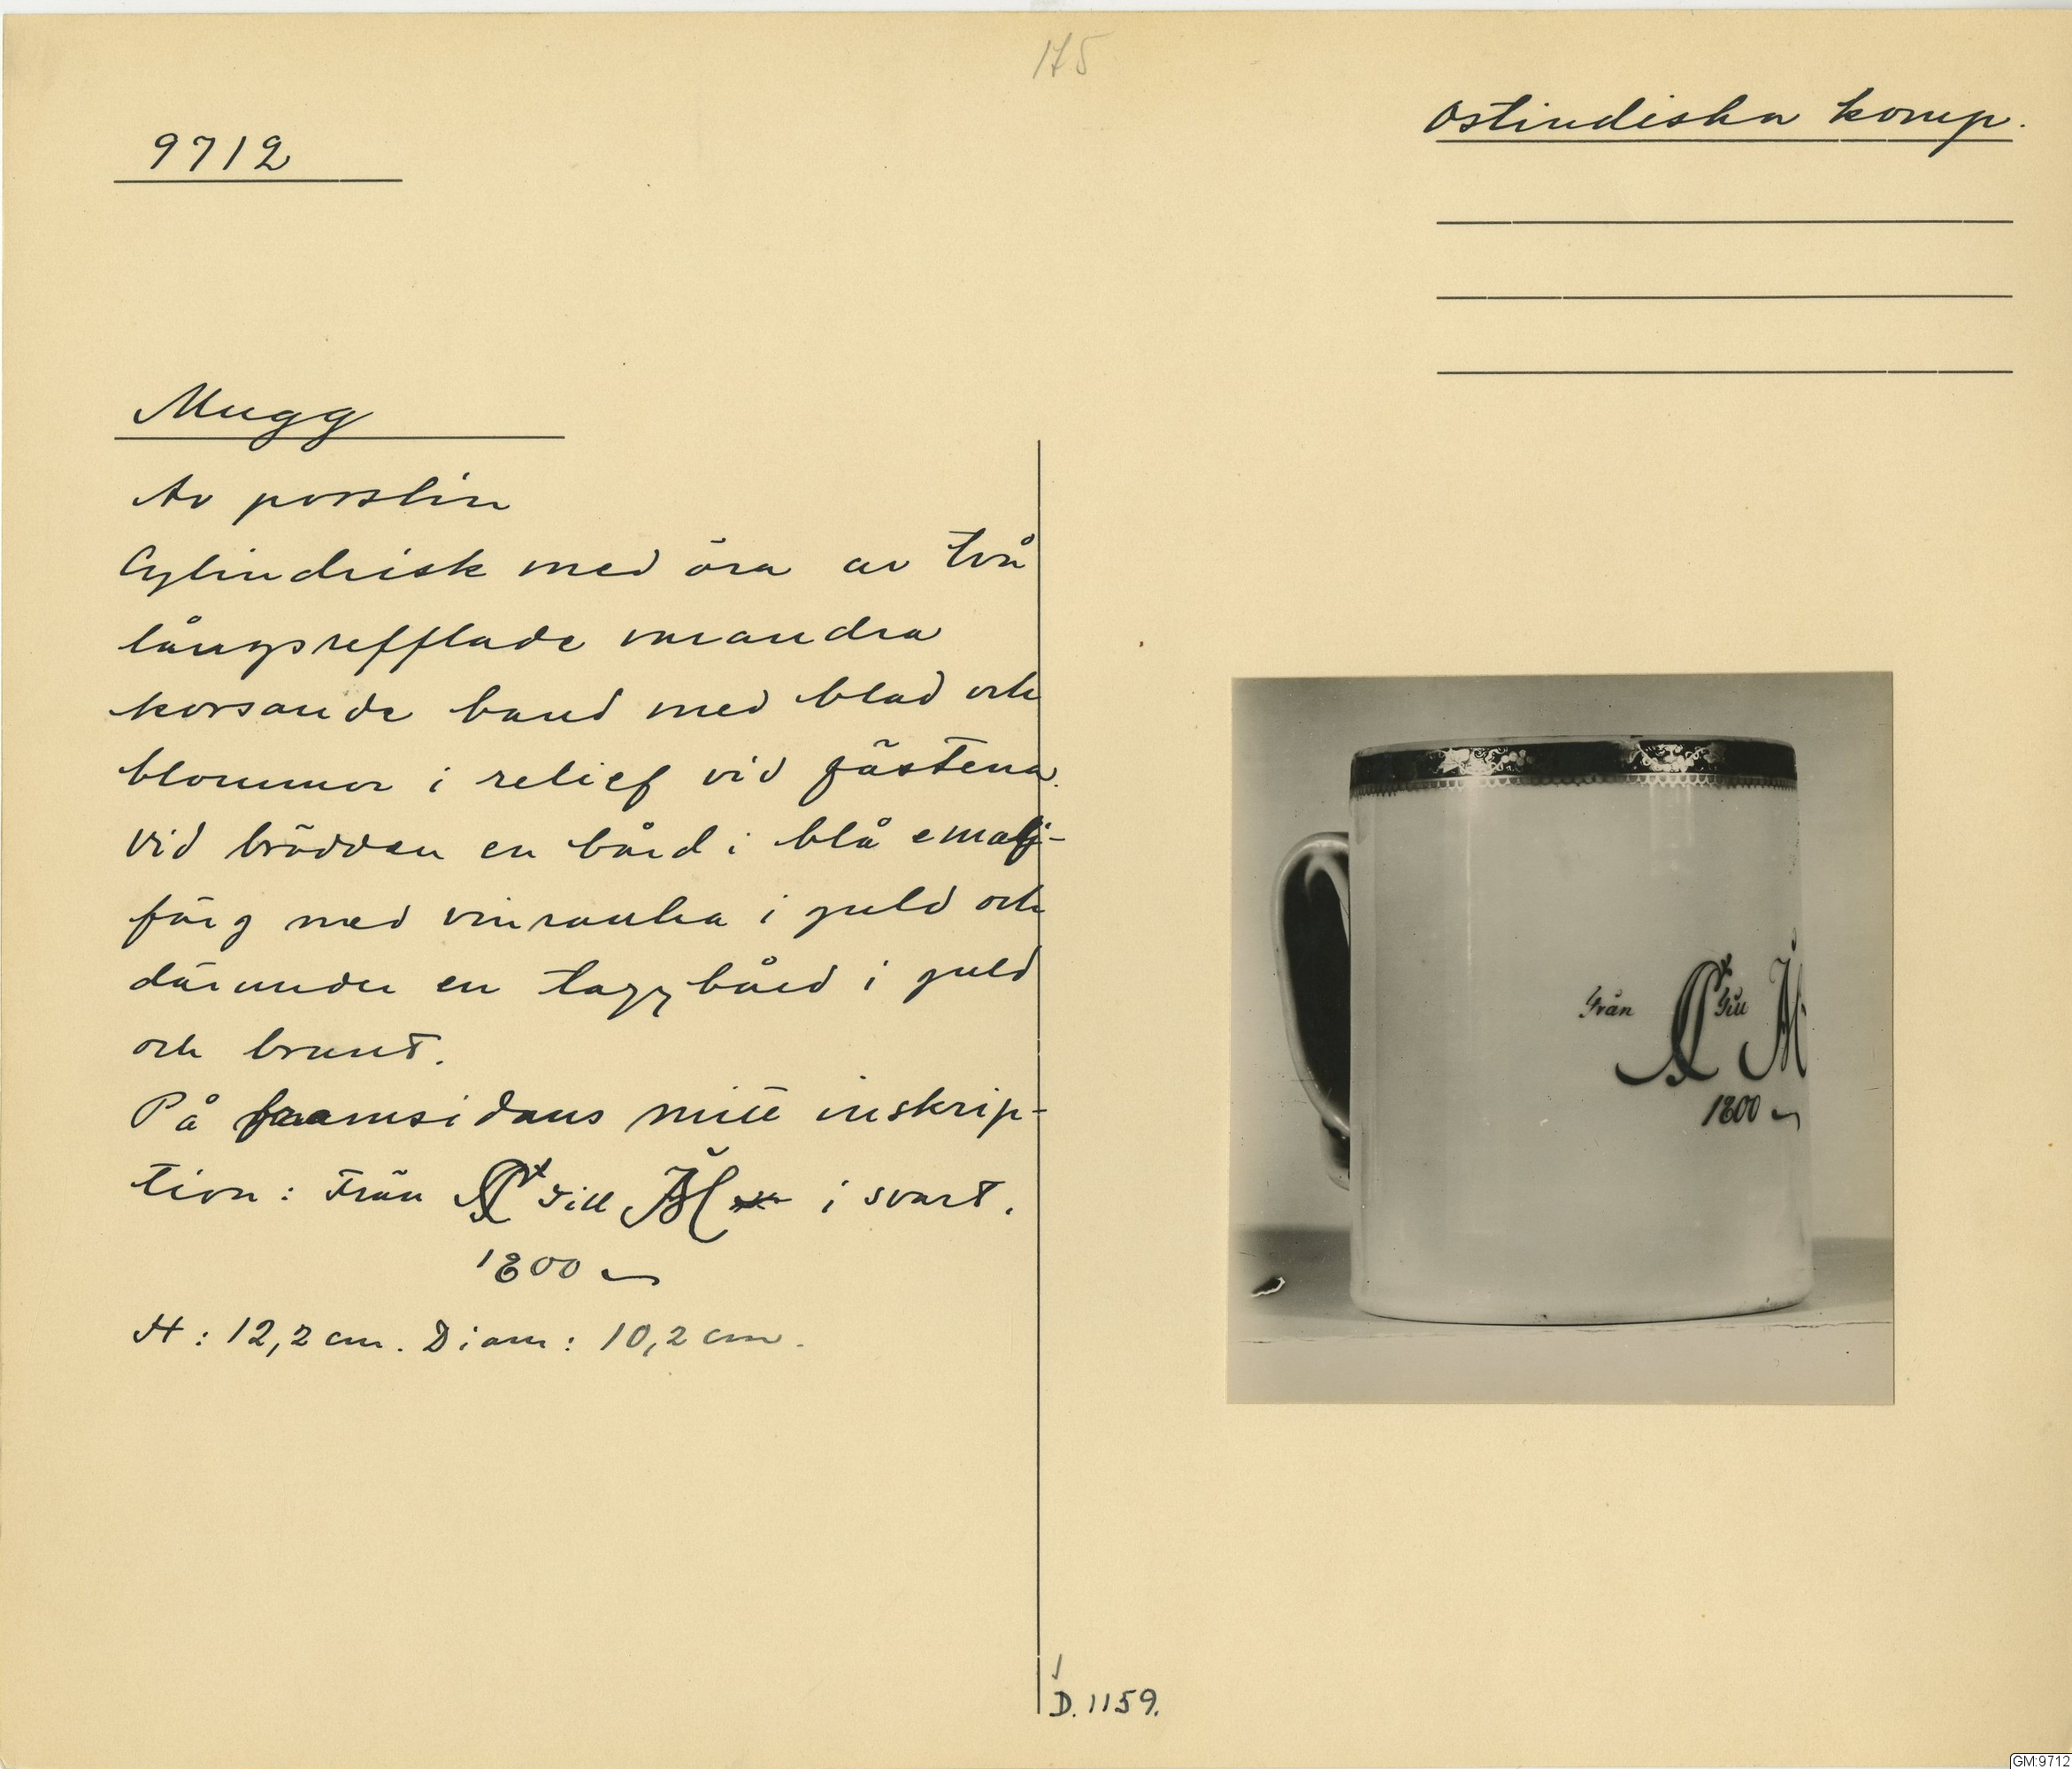 175
9712
Ostindiska komp.
Mugg
Av porslin
Cylindrisk med öra av två
långsrefflade varandra
korsande band med blad och
blommor i relief vid fästena.
Vid brädden en bård i blå emalj-
färg med vinranka i guld och
därunder en taggbård i guld
och brunt.
På framsidans mitt inskrip-
tion: Från till i svart.
1800
H: 12,2 cm. Diam: 10,2 cm.
Från till
1800
D. 1159.
GM:9712